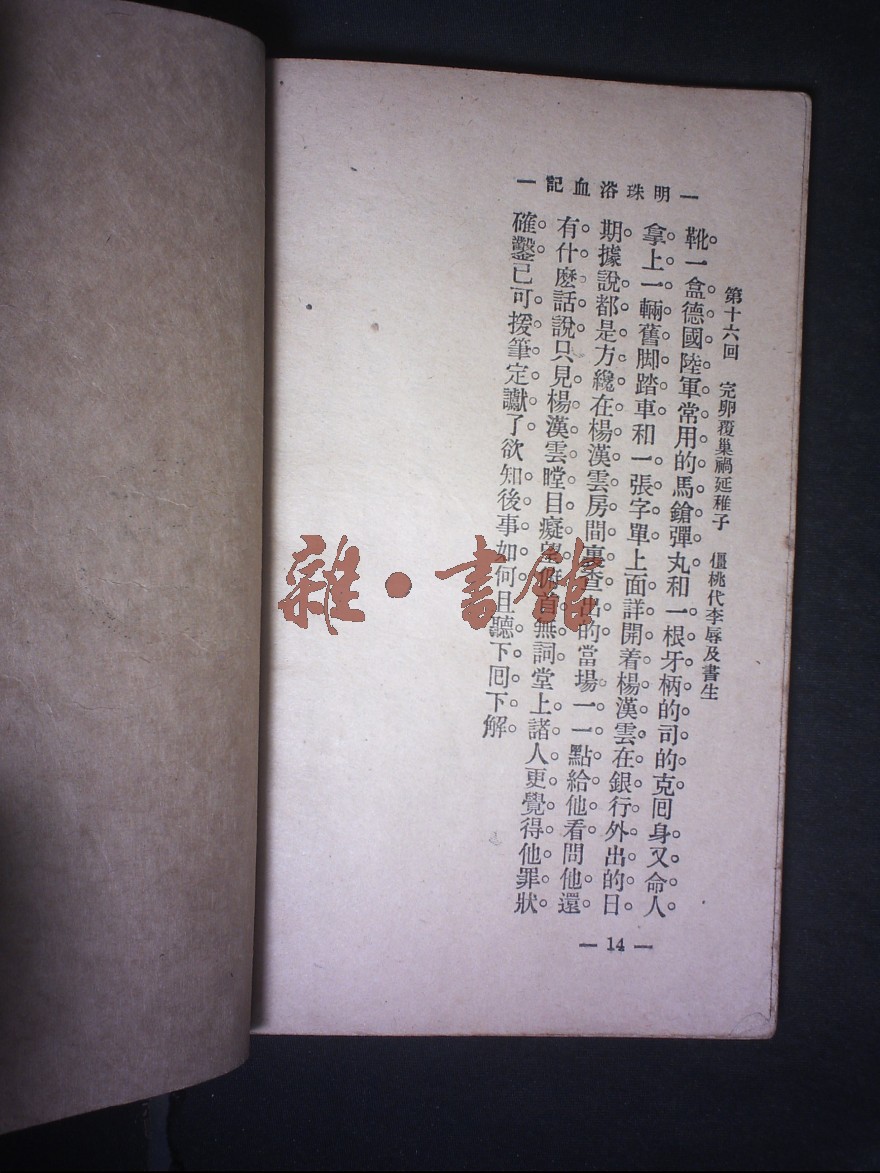 — 明珠浴血記 —
第十六回 完卵覆巢禍延稚子 僵桃代李辱及書生
靴一盒德國陸軍常用的馬鎗彈丸和一根牙柄的司的克囘身又命人
拿上一輛舊脚踏車和一張字單上面詳開着楊漢雲在銀行外出的日
期據說都是方纔在楊漢雲房間裏查出的當場一一點給他看問他還
有什麽話說只見楊漢雲瞠目癡望首無詞堂上諸人更覺得他罪狀
確鑿已可援筆定讞了欲知後事如何且聽下囘下解
— 14 —
雜·書館